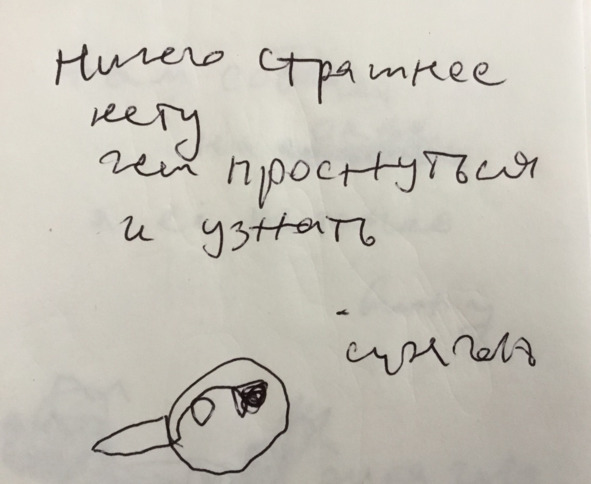 Ничего страшнее
нету
чем проснуться
и узнать